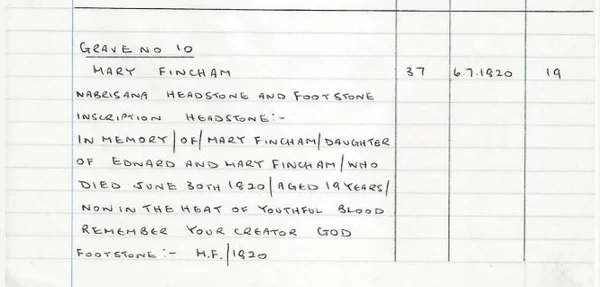 GRAVE NO 10
MARY FINCHAM 37 6.7.1820 19
NABRISANA HEADSTONE AND FOOTSTONE
INSCRIPTION HEADSTONE:-
IN MEMORY/OF/MARY FINCHAM/DAUGHTER
OF EDWARD AND MARY FINCHAM/WHO
DIED JUNE 30TH 1820/AGED 19 YEARS/
NOW IN THE HEAT OF YOUTHFUL BLOOD
REMEMBER YOUR CREATOR GOD
FOOTSTONE:- M.F./1820